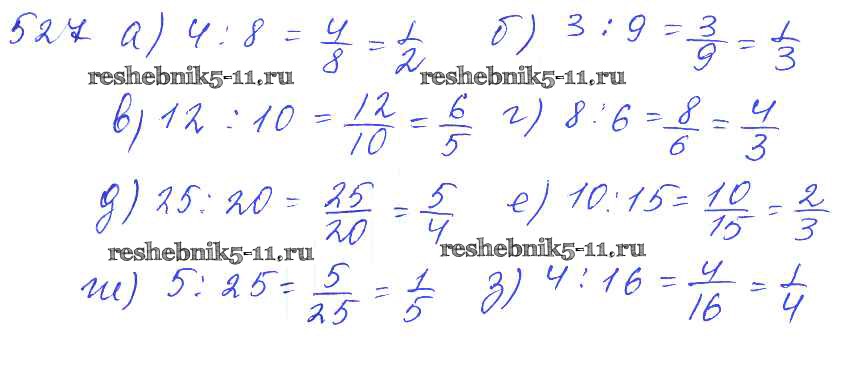 527 а) 4 : 8 = 4/8 = 1/2 б) 3 : 9 = 3/9 = 1/3
reshebnik5-11.ru reshebnik5-11.ru
в) 12 : 10 = 12/10 = 6/5 г) 8 : 6 = 8/6 = 4/3
д) 25 : 20 = 25/20 = 5/4 е) 10 : 15 = 10/15 = 2/3
reshebnik5-11.ru reshebnik5-11.ru
ж) 5 : 25 = 5/25 = 1/5 з) 4 : 16 = 4/16 = 1/4